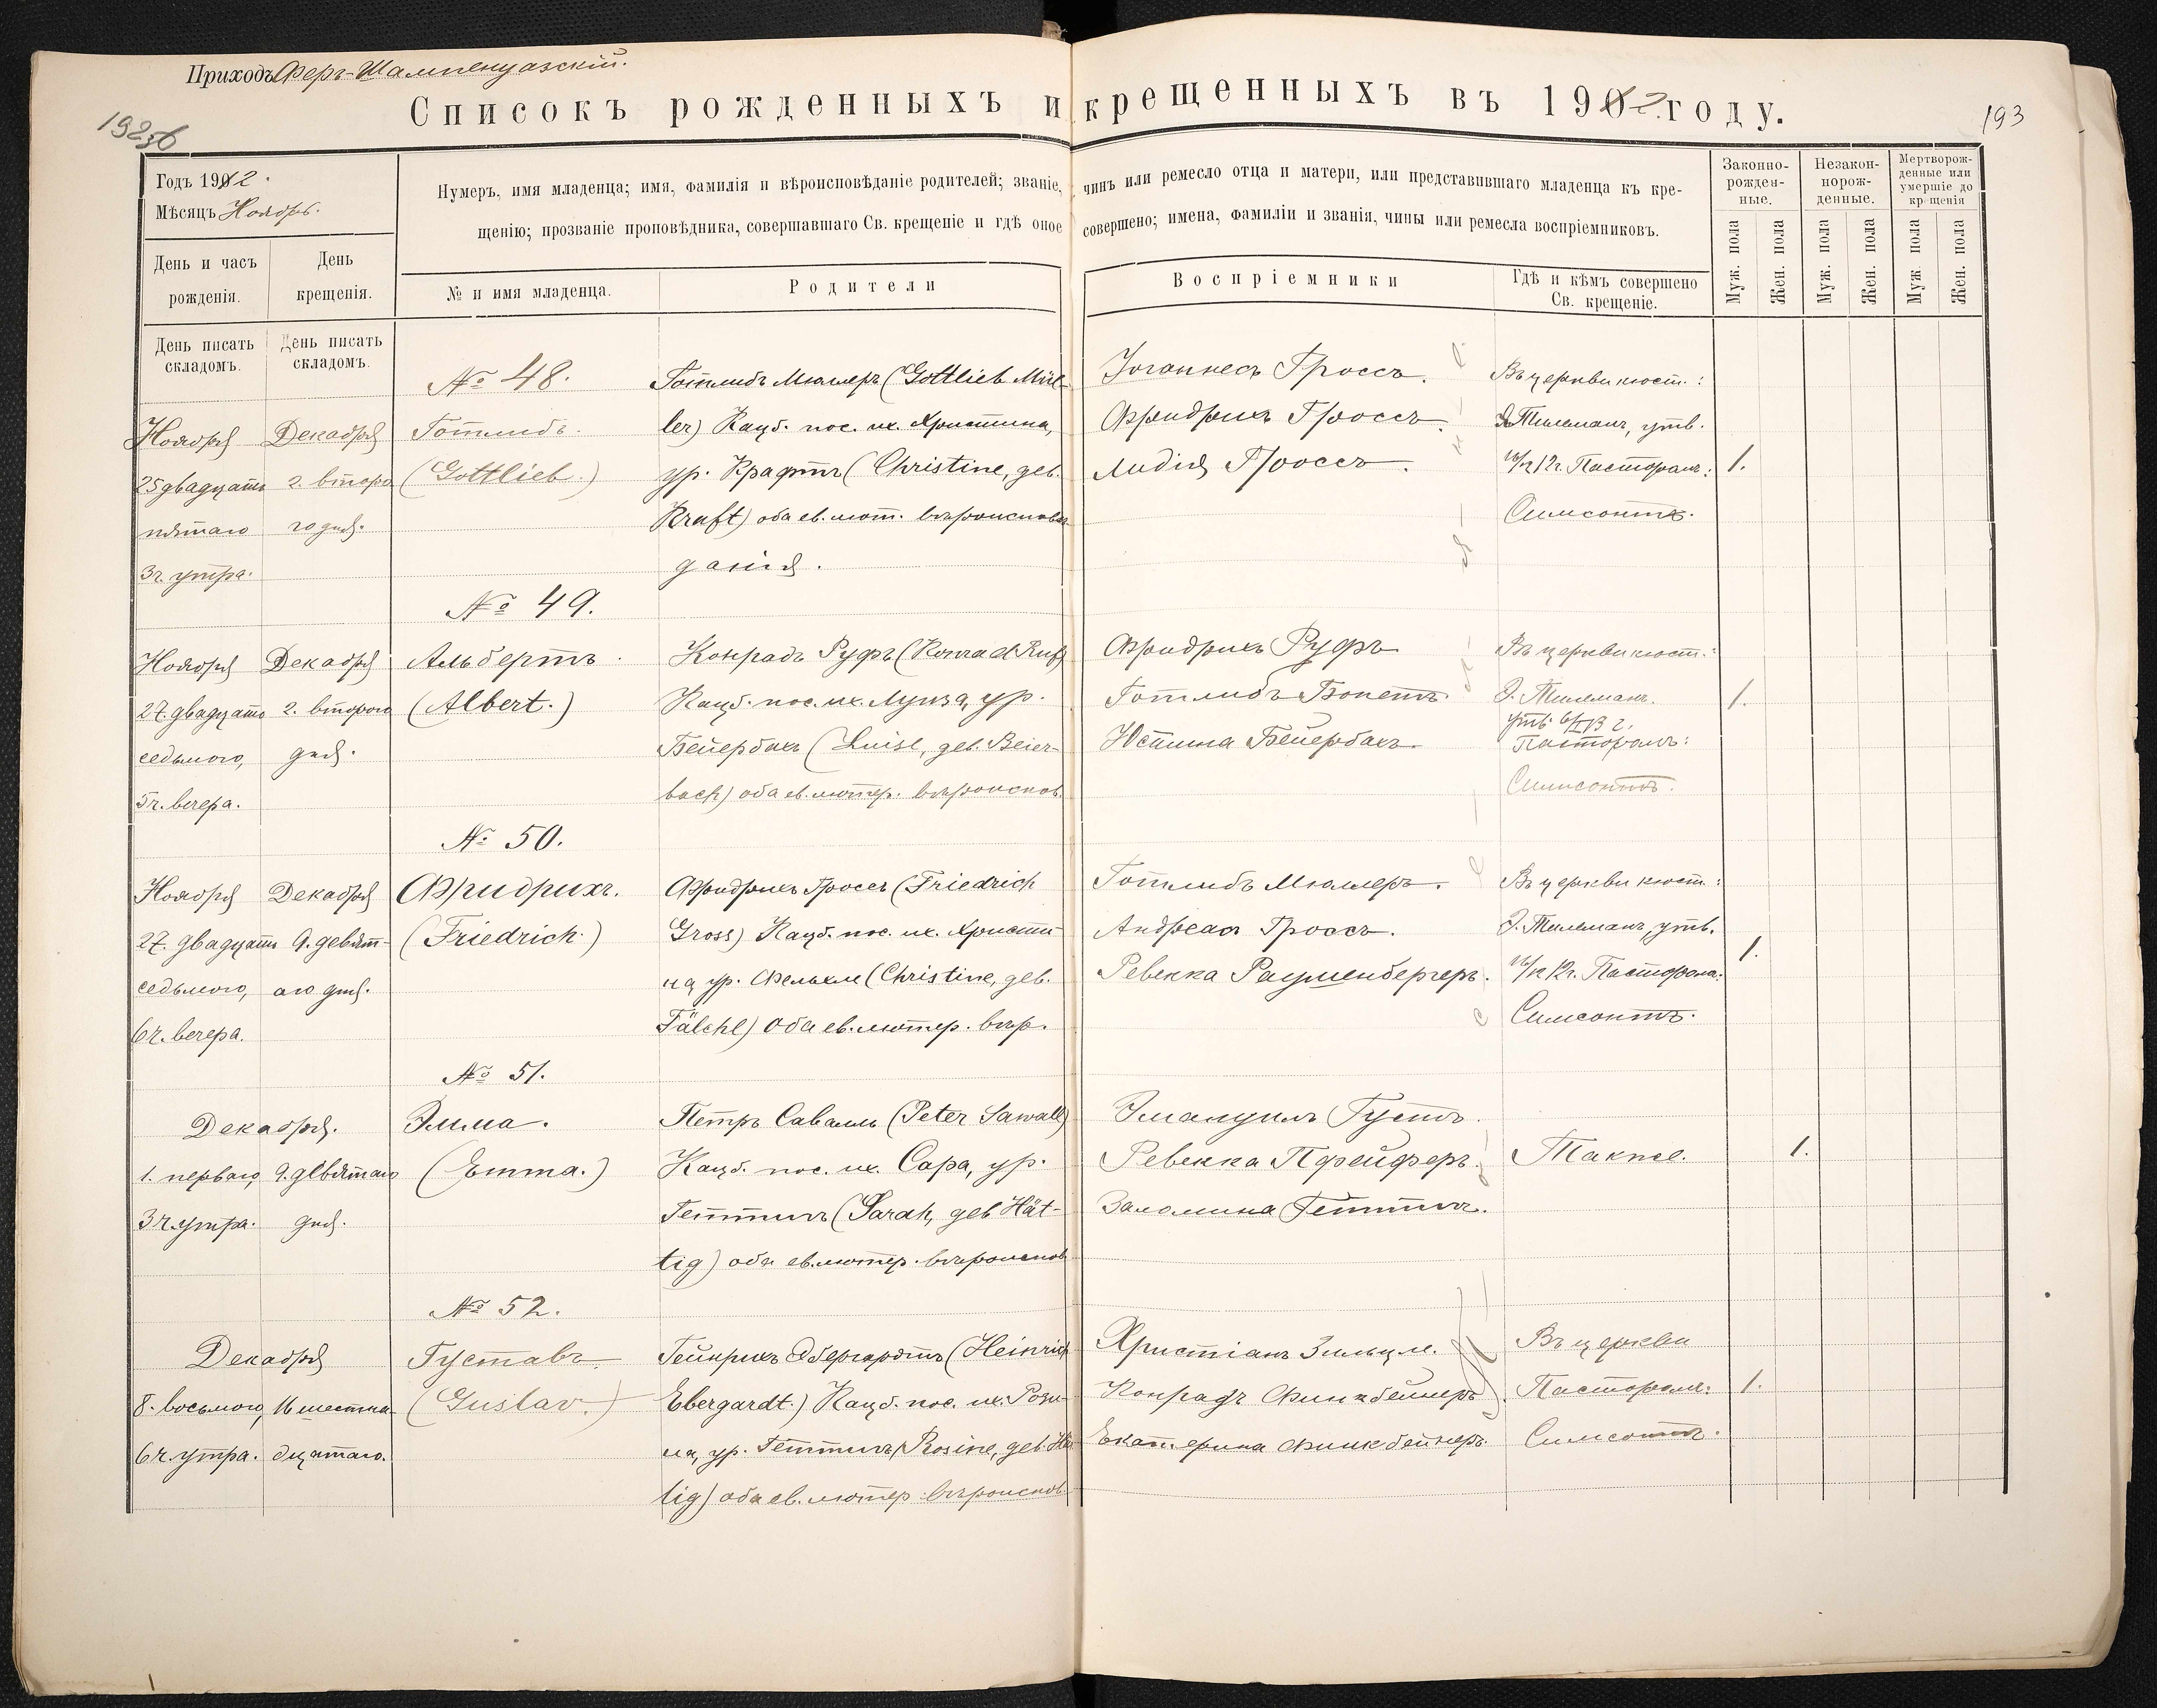 Приходъ Феръ-Шампенуазскій.
Списокъ рожденныхъ и крещенныхъ въ 1912 году.
193
Годъ 1912.
Мѣсяцъ Ноябрь.
Нумеръ, имя младенца; имя, фамилія и вѣроисповѣданіе родителей; званіе, чинъ или ремесло отца и матери, или представившаго младенца къ кре-
щенію; прозваніе проповѣдника, совершавшаго Св. крещеніе и гдѣ оное совершено; имена, фамиліи и званія, чины или ремесла воспріемниковъ.
Законно-
рожден-
ные.
Незакон-
норож-
денные.
Мертворож-
денные или
умершіе до
крещенія
День и часъ
рожденія.
День
крещенія.
№ и имя младенца.
Родители
Воспріемники
Гдѣ и кѣмъ совершено
Св. крещеніе.
Муж. пола
Жен. пола
Муж. пола
Жен. пола
Муж. пола
Жен. пола
День писать
складомъ.
День писать
складомъ.
№ 48.
Ноября
25 двадцать
пятаго
3 ч. утра.
Декабря
2. второ
го дня.
Готлибъ.
(Gottlieb.)
Готлибъ Мюллеръ (Gottlieb Mül-
ler) Кацб. пос. их. Христина,
ур. Крафтъ (Christine, geb.
Kraft) оба ев. лют. вѣроисповѣ
данія.
Іоганнесъ Гроссъ.
Фридрихъ Гроссъ.
Лидія Гроссъ.
Въ церкви кюст.:
Э. Тилеманъ, утв.
16/12 12 г. Пасторомъ:
Симсонтъ.
1.
№ 49.
Ноября
27. двадцать
седьмого,
5 ч. вечера.
Декабря
2. второго
дня.
Альбертъ.
(Albert.)
Конрадъ Руфъ (Konrad Ruf)
Кацб. пос. их. Луиза, ур.
Бейербахъ (Luise, geb. Beier-
bach) оба ев. лютер. вѣроиспов.
Фридрихъ Руфъ
Готлибъ Бонетъ
Юстина Бейербахъ
Въ церкви кюст.:
Э. Тилеманъ.
утв. 6/I 13 г.
Пасторомъ:
Симсонтъ.
1.
№ 50.
Ноября
27. двадцать
седьмого,
6 ч. вечера.
Декабря
9. девят-
аго дня.
Фридрихъ.
(Friedrich.)
Фридрихъ Гроссъ (Friedrich
Gross) Кацб. пос. их. Христи-
на, ур. Фельхле (Christine, geb.
Fälchl) оба ев. лютер. вѣр.
Готлибъ Мюллеръ.
Андреасъ Гроссъ.
Ревекка Раушенбергеръ.
Въ церкви кюст.:
Э. Тилеманъ, утв.
16/12 12 г. Пасторомъ:
Симсонтъ.
1.
№ 51.
Декабря.
1. перваго,
3 ч. утра.
9. девятаго
дня.
Эмма.
(Emma.)
Петръ Саваль (Peter Sawall)
Кацб. пос. их. Сара, ур.
Геттигъ (Sarah, geb. Hät-
tig) оба ев. лютер. вѣроиспов.
Эмануилъ Густъ.
Ревекка Пфейферъ.
Заломина Геттигъ.
Такъ же.
1.
№ 52.
Декабря
8. восьмого,
6 ч. утра.
16 шестна-
дцатаго.
Густавъ
(Gustav.)
Гейнрихъ Эбергардтъ (Heinrich
Ebergardt.) Кацб. пос. их. Рози-
на, ур. Геттигъ (Rosine, geb. Hät
tig) оба ев. лютер. вѣроиспов.
Христіанъ Зильцле.
Конрадъ Финкбейнеръ
Екатерина Финкбейнеръ.
Въ церкви
Пасторомъ:
Симсонтъ.
1.